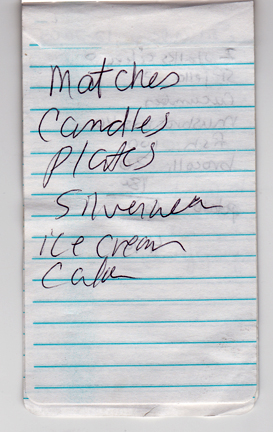 Matches
Candles
Plates
Silverwear
ice cream
Cake